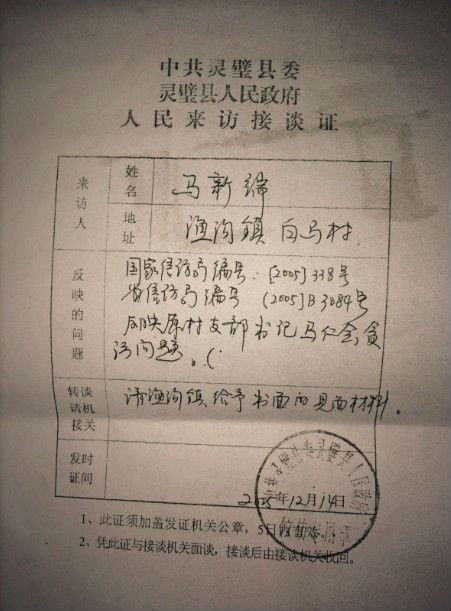 中共灵璧县委
灵璧县人民政府
人民来访接谈证
来访人
姓名
马新绵
地址
渔沟镇 白马村
反映的问题
国家信访局编号:[2005]338号
省信访局编号 (2005]B3084号
反映原村支部书记马仁会贪
污问题。(
转谈请机接关
请渔沟镇给予书面的见面材料。
发时证间
2005年12月14日
1、此证须加盖发证机关公章,5日内有效。
2、凭此证与接谈机关面谈,接谈后由接谈机关收回。